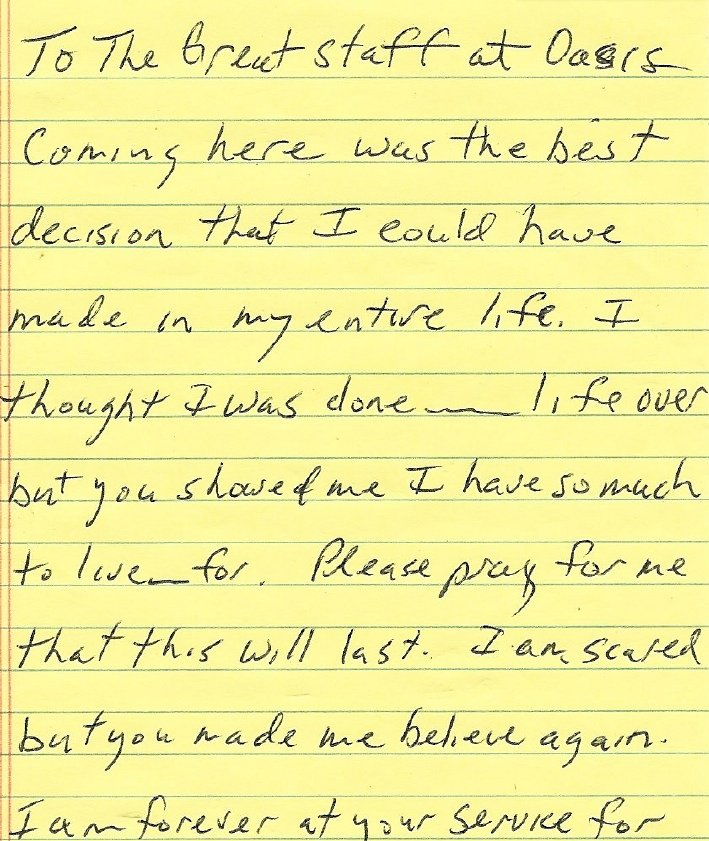 To The Great staff at Oasis
Coming here was the best
decision that I could have
made in my entire life. I
thought I was done — life over
but you showed me I have so much
to live — for. Please pray for me
that this will last. I am scared
but you made me believe again.
I am forever at your service for